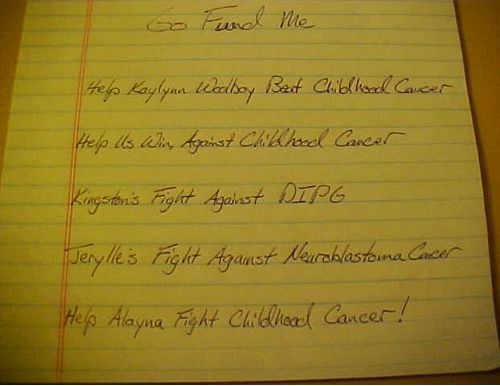 Go Fund Me
Help Kaylynn Woolboy Beat Childhood Cancer
Help Us Win, Against Childhood Cancer
Kingston's Fight Against DIPG
Jerylle's Fight Against Neuroblastoma Cancer
Help Alayna Fight Childhood Cancer!